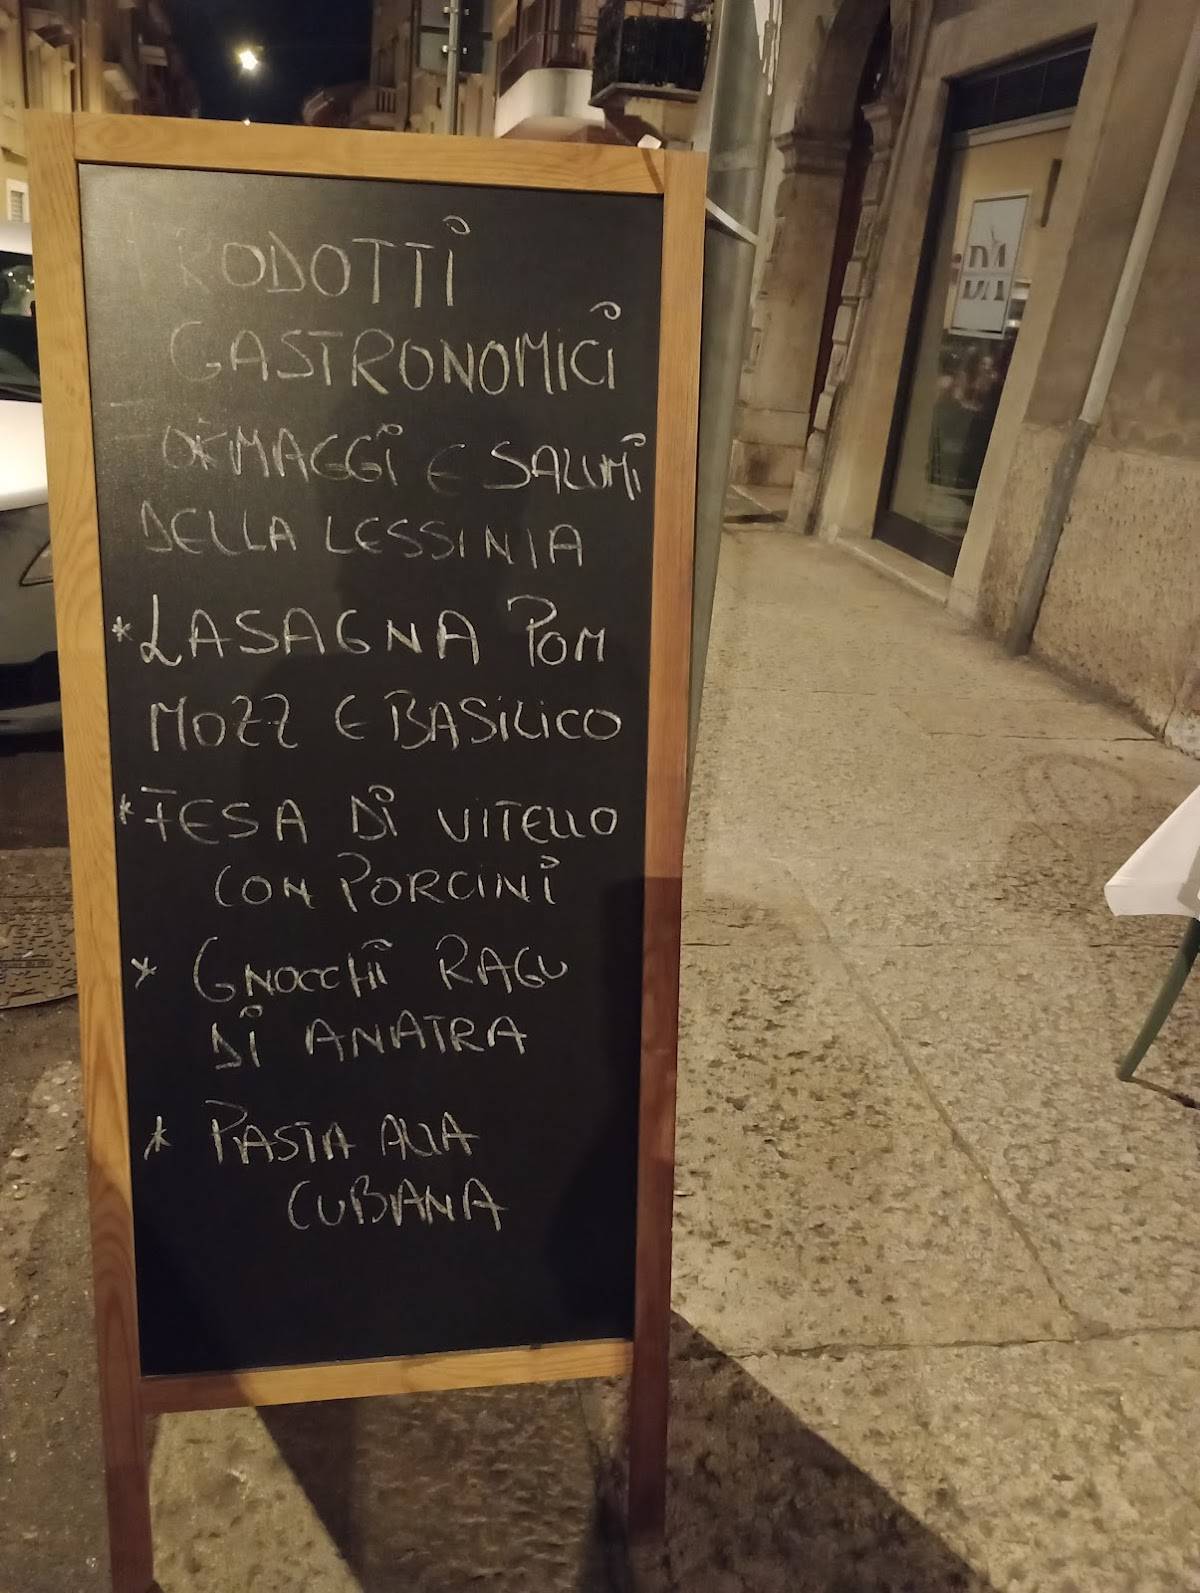 PRODOTTI
GASTRONOMICI
FORMAGGI E SALUMI
DELLA LESSINIA
*LASAGNA POM
MOZZ E BASILICO
*FESA DI VITELLO
CON PORCINI
* GNOCCHI RAGU
DI ANATRA
* PASTA ALLA
CUBANA